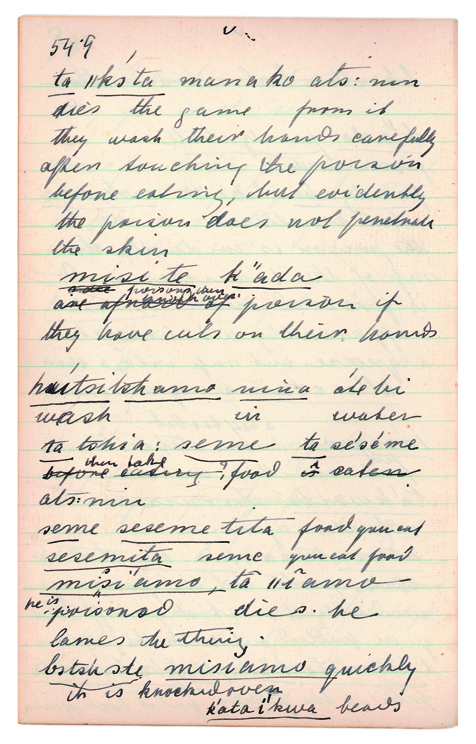 549
ta ǁk'sta manako ats: nin
dies the game from it
they wash their hands carefully
after touching the poison
before eating, but evidently
the poison does not penetrate
the skin
misi te k"ada
poisons them
are afraid of poison if
they have cuts on their hands
nina átebi
wash in water
ta tshia: seme ta séséme
then take
before eating ? food is eaten
ats: nin
seme seseme tita food you eat
sesemita seme you eat food
misi'amo, ta ǁíamo
he is poisoned dies. he
lames the thing.
misiamo quickly
it is knocked over
k'ata i'kwa beads